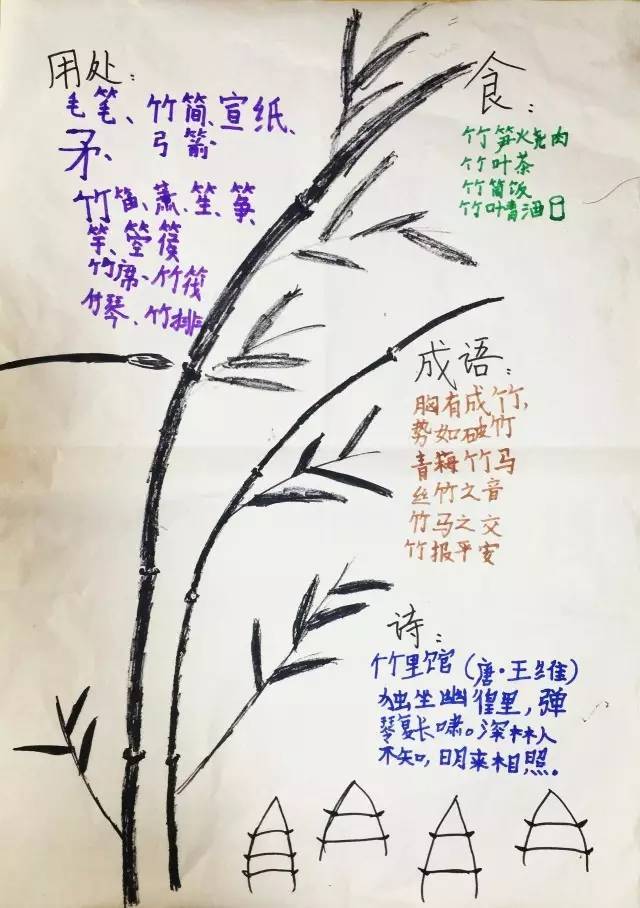 用处：
毛笔、竹简、宣纸、
矛、弓箭
竹笛、萧、笙、筝
竽、箜篌
竹席、竹筏
竹琴、竹排
食：
竹笋火烧肉
竹叶茶
竹筒饭
竹叶青酒
成语：
胸有成竹，
势如破竹
青梅竹马
丝竹之音
竹马之交
竹报平安
诗：
竹里馆（唐·王维）
独坐幽徨里，弹
琴复长啸。深林人
不知，明来相照．